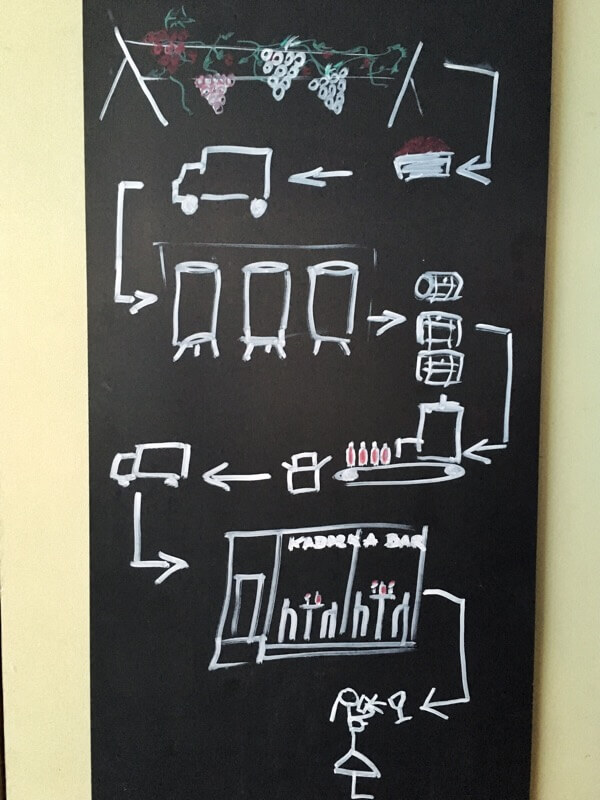 KADARKA BAR